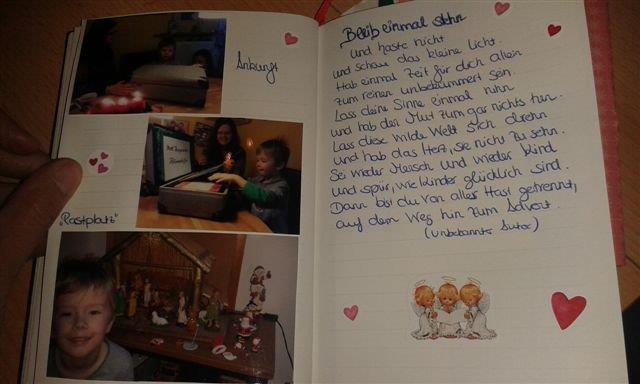 Ankunft
"Rastplatz"
Bleib einmal stehn
und haste nicht
und schau das kleine Licht.
Hab einmal Zeit für dich allein
zum reinen unbekümmert sein.
Lass deine Sinne einmal ruhn
und hab den Mut zum gar nichts tun.
Lass diese wilde Welt sich drehn
und hab das Herz, sie nicht zu sehn.
Sei wieder Mensch und wieder Kind
und spür, wie Kinder glücklich sind.
Dann bist du von aller Hast getrennt,
auf dem Weg hin zum Advent.
(unbekannter Autor)